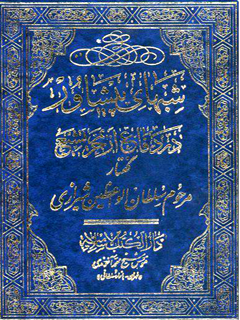 شبهای پیشاور
در دفاع از حریم تشیع
گفتار
مرحوم سلطان الواعظین شیرازی
دار الکتب الاسلامیه